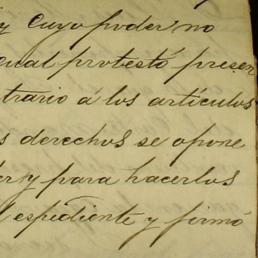 y cuyo poder no
cual protestó preser
trario á los artículos
s derechos se opone
er y para hacerlos
l espediente y firmó